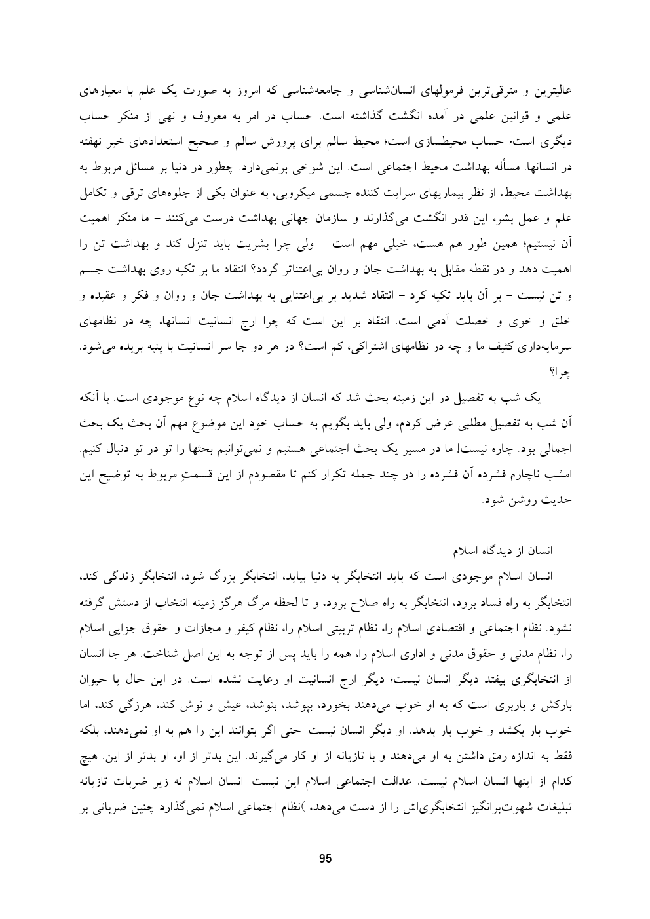 عالیترین و مترقی‌ترین فرمولهای انسان‌شناسی و جامعه‌شناسی که امروز به صورت یک علم با معیارهای
علمی و قوانین علمی در آمده انگشت گذاشته است. حساب در امر به معروف و نهی از منکر حساب
دیگری است؛ حساب محیطسازی است؛ محیط سالم برای پرورش سالم و صحیح استعدادهای خیر نهفته
در انسانها. مسأله بهداشت محیط اجتماعی است. این شوخی برنمی‌دارد. چطور در دنیا بر مسائل مربوط به
بهداشت محیط، از نظر بیماریهای سرایت کننده جسمی میکروبی، به عنوان یکی از جلوه‌های ترقی و تکامل
علم و عمل بشر، این قدر انگشت می‌گذارند و سازمان جهانی بهداشت درست می‌کنند – ما منکر اهمیت
آن نیستیم؛ همین طور هم هست، خیلی مهم است – ولی چرا بشریت باید تنزل کند و بهداشت تن را
اهمیت دهد و در نقطه مقابل به بهداشت جان و روان بی‌اعتناتر گردد؟ انتقاد ما بر تکیه روی بهداشت جسم
و تن نیست – بر آن باید تکیه کرد – انتقاد شدید بر بی‌اعتنایی به بهداشت جان و روان و فکر و عقیده و
خلق و خوی و خصلت آدمی است. انتقاد بر این است که چرا ارج انسانیت انسانها، چه در نظامهای
سرمایه‌داری کثیف ما و چه در نظامهای اشتراکی، کم است؟ در هر دو جا سر انسانیت با پنبه بریده می‌شود.
چرا؟
یک شب به تفصیل در این زمینه بحث شد که انسان از دیدگاه اسلام چه نوع موجودی است. با آنکه
آن شب به تفصیل مطلبی عرض کردم، ولی باید بگویم به حساب خود این موضوع مهم آن بحث یک بحث
اجمالی بود. چاره نیست! ما در مسیر یک بحث اجتماعی هستیم و نمی‌توانیم بحثها را تو در تو دنبال کنیم.
امشب ناچارم فشرده آن فشرده را در چند جمله تکرار کنم تا مقصودم از این قسمتِ مربوط به توضیح این
حدیث روشن شود.
انسان از دیدگاه اسلام
انسان اسلام موجودی است که باید انتخابگر به دنیا بیاید، انتخابگر بزرگ شود، انتخابگر زندگی کند،
انتخابگر به راه فساد برود، انتخابگر به راه صلاح برود، و تا لحظه مرگ هرگز زمینه انتخاب از دستش گرفته
نشود. نظام اجتماعی و اقتصادی اسلام را، نظام تربیتی اسلام را، نظام کیفر و مجازات و حقوق جزایی اسلام
را، نظام مدنی و حقوق مدنی و اداری اسلام را، همه را باید پس از توجه به این اصل شناخت. هر جا انسان
از انتخابگری بیفتد دیگر انسان نیست؛ دیگر ارج انسانیت او رعایت نشده است. در این حال با حیوان
بارکش و باربری است که به او خوب می‌دهند بخورد، بپوشد، بنوشد، عیش و نوش کند، هرزگی کند، اما
خوب بار بکشد و خوب بار بدهد. او دیگر انسان نیست. حتی اگر بتوانند این را هم به او نمی‌دهند، بلکه
فقط به اندازه رمق داشتن به او می‌دهند و با تازیانه از او کار می‌گیرند. این بدتر از او، و بدتر از این. هیچ
کدام از اینها انسان اسلام نیست. عدالت اجتماعی اسلام این نیست. انسان اسلام نه زیر ضربات تازیانه
تبلیغات شهوت‌برانگیز انتخابگری‌اش را از دست می‌دهد، )نظام اجتماعی اسلام نمی‌گذارد چنین ضرباتی بر
95